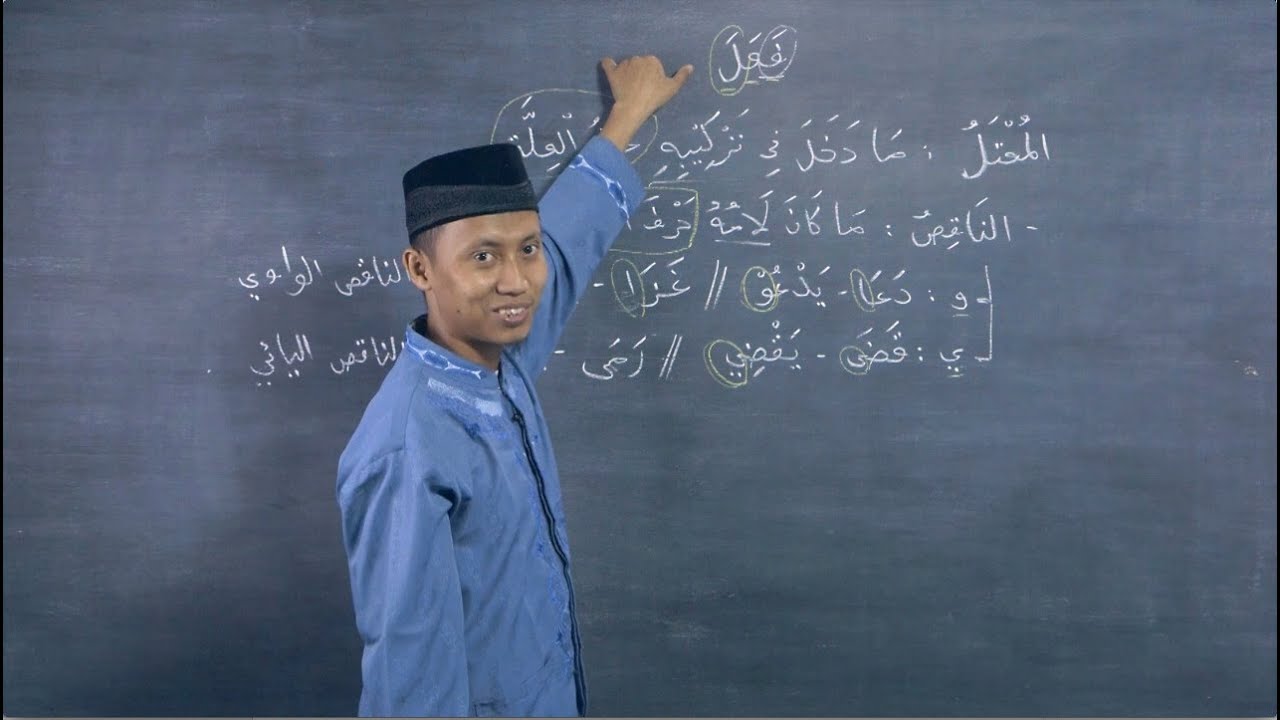 فَعَلَ
المُعْتَلُ : مَا دَخَلَ فِي تَرْكِيبِهِ الْعِلَّة
- النَاقِصُ : مَا كَانَ لَامُهُ حَرْفَ
و : دَعَا - يَدْعُوْ // غَزَا - الناقص الواوي
ي : قَضَى - يَقْضِي // رَمَى - الناقص اليائي .